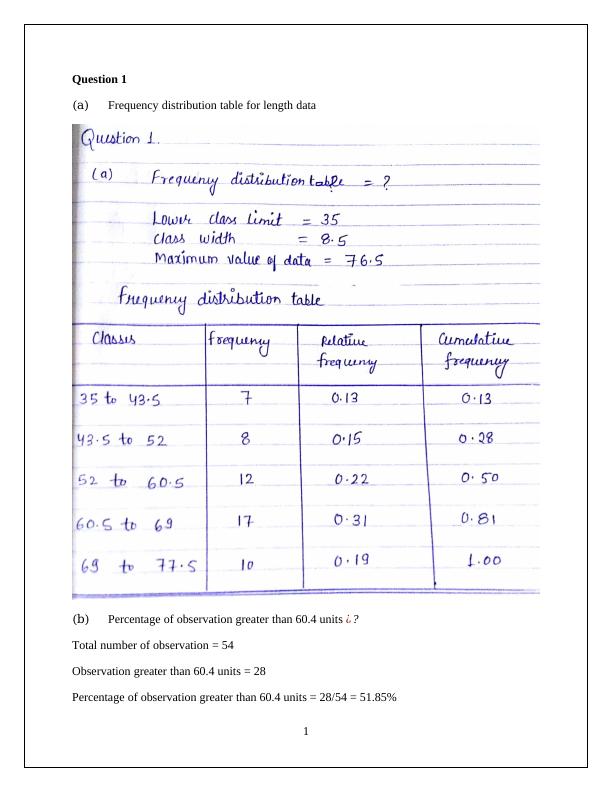 Question 1
(a) Frequency distribution table for length data
Question 1.
(a) Frequency distribution table = ?
Lower class limit = 35
class width = 8.5
Maximum value of data = 76.5
Frequency distribution table
Classes Frequency Relative frequency Cumulative frequency
35 to 43.5 7 0.13 0.13
43.5 to 52 8 0.15 0.28
52 to 60.5 12 0.22 0.50
60.5 to 69 17 0.31 0.81
69 to 77.5 10 0.19 1.00
(b) Percentage of observation greater than 60.4 units ¿?
Total number of observation = 54
Observation greater than 60.4 units = 28
Percentage of observation greater than 60.4 units = 28/54 = 51.85%
1